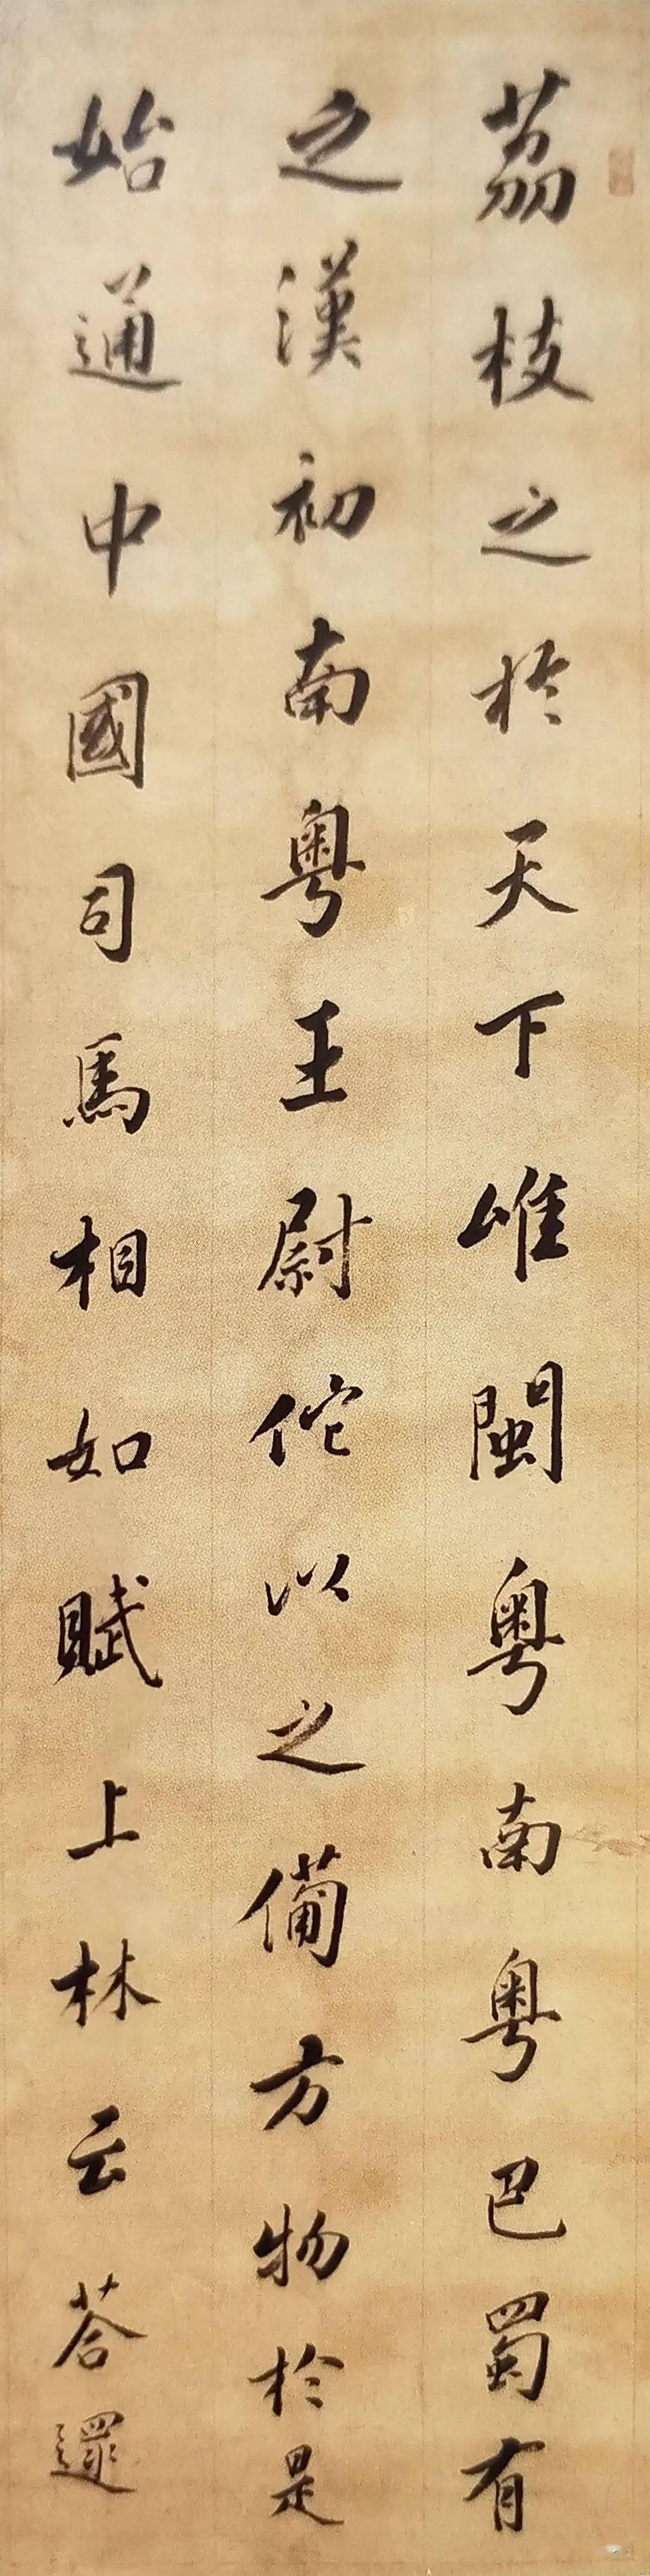 荔枝之於天下唯閩粤南粤巴蜀有
之漢初南粤王尉佗以之備方物於是
始通中國司馬相如賦上林云荅遝